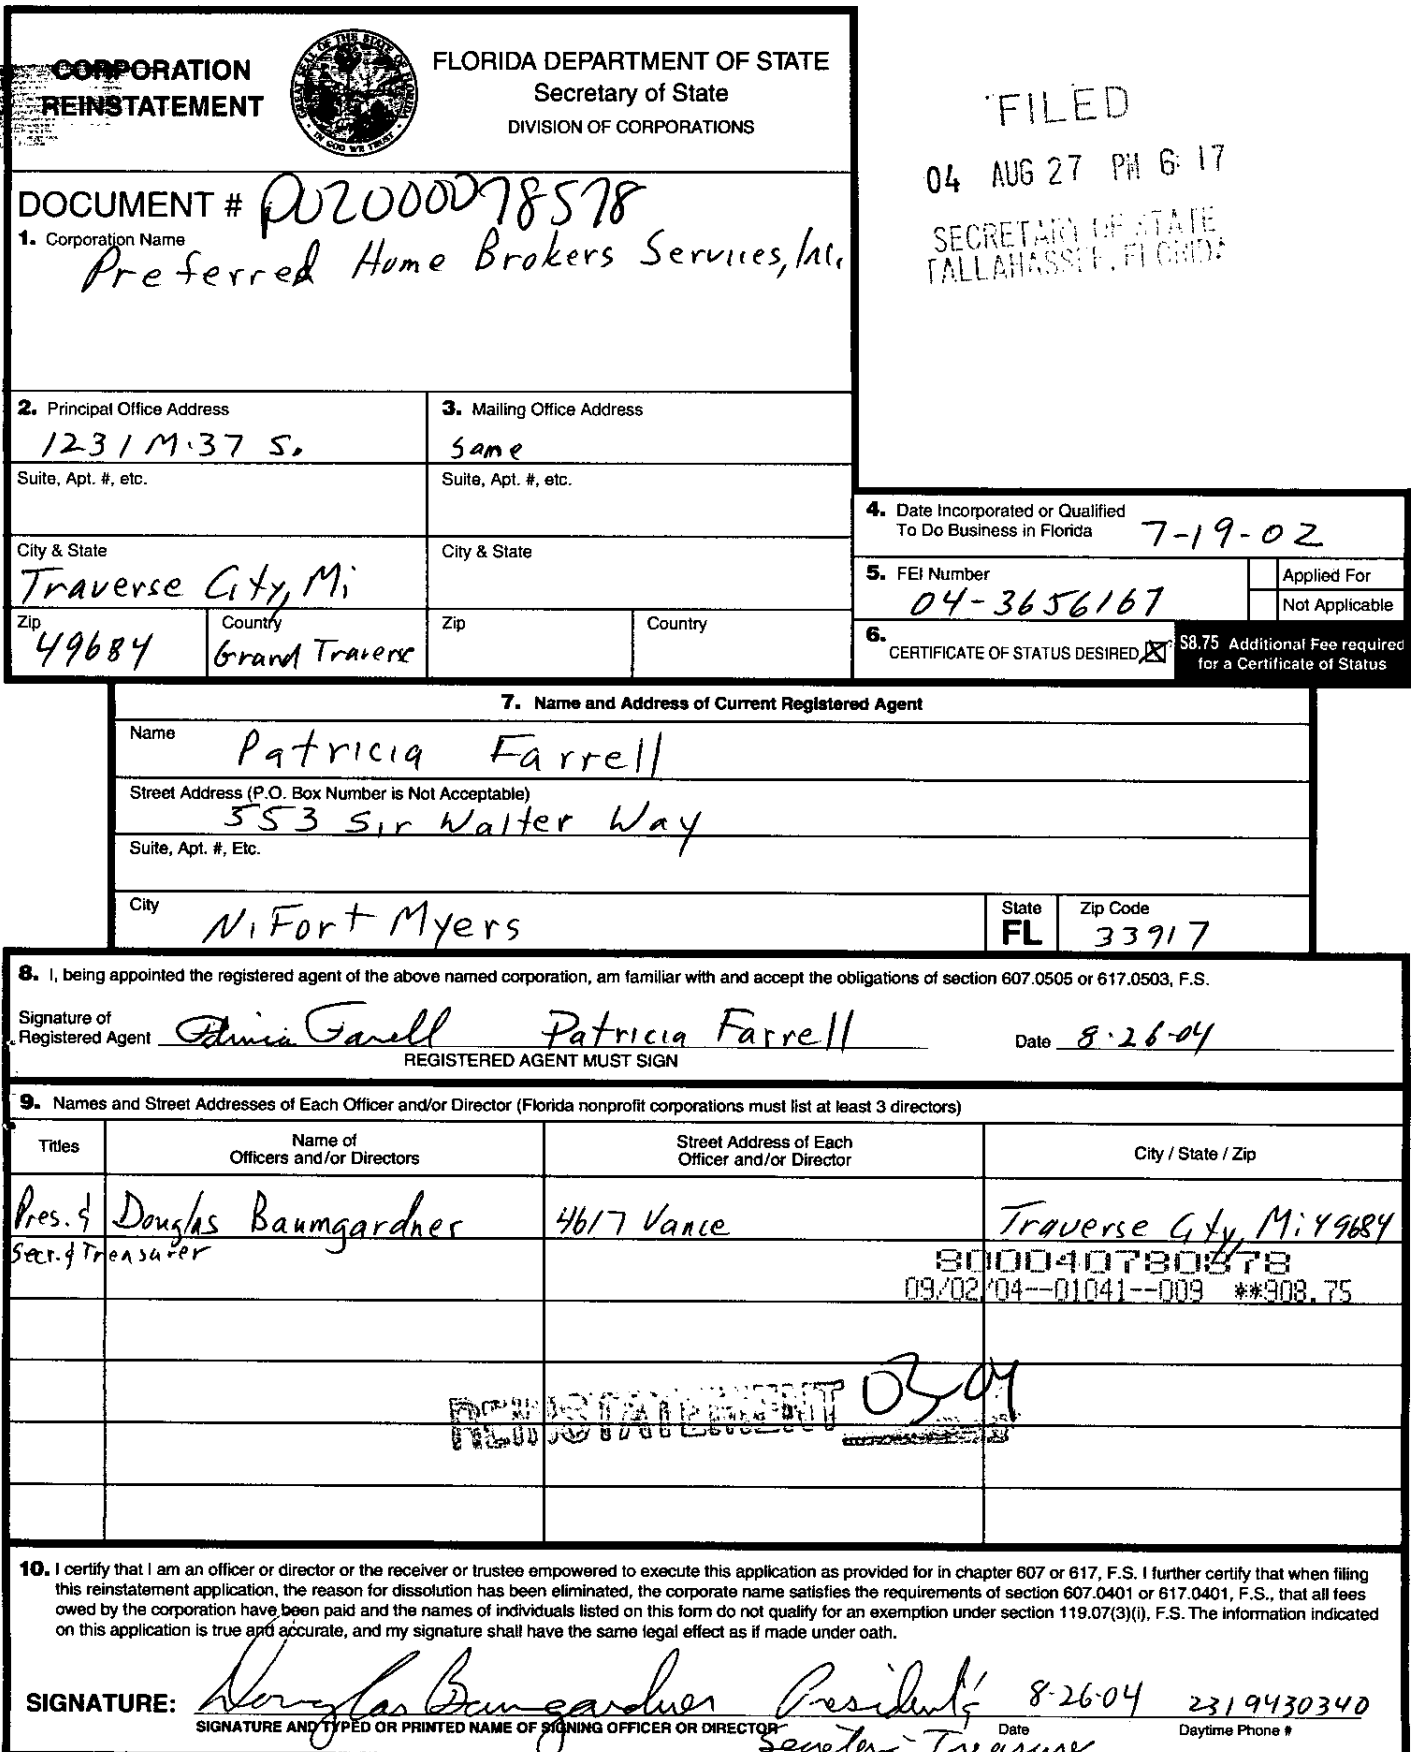 CORPORATION
REINSTATEMENT
FLORIDA DEPARTMENT OF STATE
Secretary of State
DIVISION OF CORPORATIONS
FILED
04 AUG 27 PM 6:17
SECRETARY OF STATE
TALLAHASSEE, FLORIDA
DOCUMENT # P02000078578
1. Corporation Name
Preferred Home Brokers Services, Inc.
2. Principal Office Address
1231 M-37 S.
3. Mailing Office Address
Same
Suite, Apt. #, etc.
Suite, Apt. #, etc.
City & State
Traverse City, Mi
City & State
Zip
49684
Country
Grand Traverse
Zip
Country
4. Date Incorporated or Qualified
To Do Business in Florida
7-19-02
5. FEI Number
04-3656167
Applied For
Not Applicable
6.
CERTIFICATE OF STATUS DESIRED
$8.75 Additional Fee required
for a Certificate of Status
7. Name and Address of Current Registered Agent
Name
Patricia Farrell
Street Address (P.O. Box Number is Not Acceptable)
553 Sir Walter Way
Suite, Apt. #, Etc.
City
N. Fort Myers
State
FL
Zip Code
33917
8. I, being appointed the registered agent of the above named corporation, am familiar with and accept the obligations of section 607.0505 or 617.0503, F.S.
Signature of
Registered Agent Patricia Farrell Patricia Farrell Date 8-26-04
REGISTERED AGENT MUST SIGN
9. Names and Street Addresses of Each Officer and/or Director (Florida nonprofit corporations must list at least 3 directors)
Titles
Name of
Officers and/or Directors
Street Address of Each
Officer and/or Director
City / State / Zip
Pres. & Douglas Baumgardner 4617 Vance Traverse City, Mi 49684
Secr. & Treasurer
800040780878
09/02/04--01041--009 **908.75
REINSTATEMENT 03-04
10. I certify that I am an officer or director or the receiver or trustee empowered to execute this application as provided for in chapter 607 or 617, F.S. I further certify that when filing
this reinstatement application, the reason for dissolution has been eliminated, the corporate name satisfies the requirements of section 607.0401 or 617.0401, F.S., that all fees
owed by the corporation have been paid and the names of individuals listed on this form do not qualify for an exemption under section 119.07(3)(i), F.S. The information indicated
on this application is true and accurate, and my signature shall have the same legal effect as if made under oath.
SIGNATURE: Douglas Baumgardner President & 8-26-04 2319430340
SIGNATURE AND TYPED OR PRINTED NAME OF SIGNING OFFICER OR DIRECTOR Date Daytime Phone #